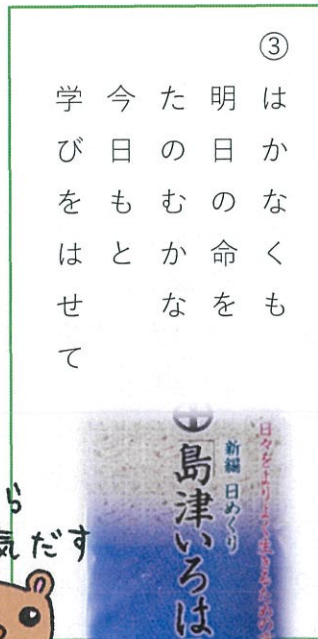 ③
はかなくも
明日の命を
たのむかな
今日もと
学びをはせて
日々をよりよく生きるための
新編 日めくり
島津いろは
ら
気だす